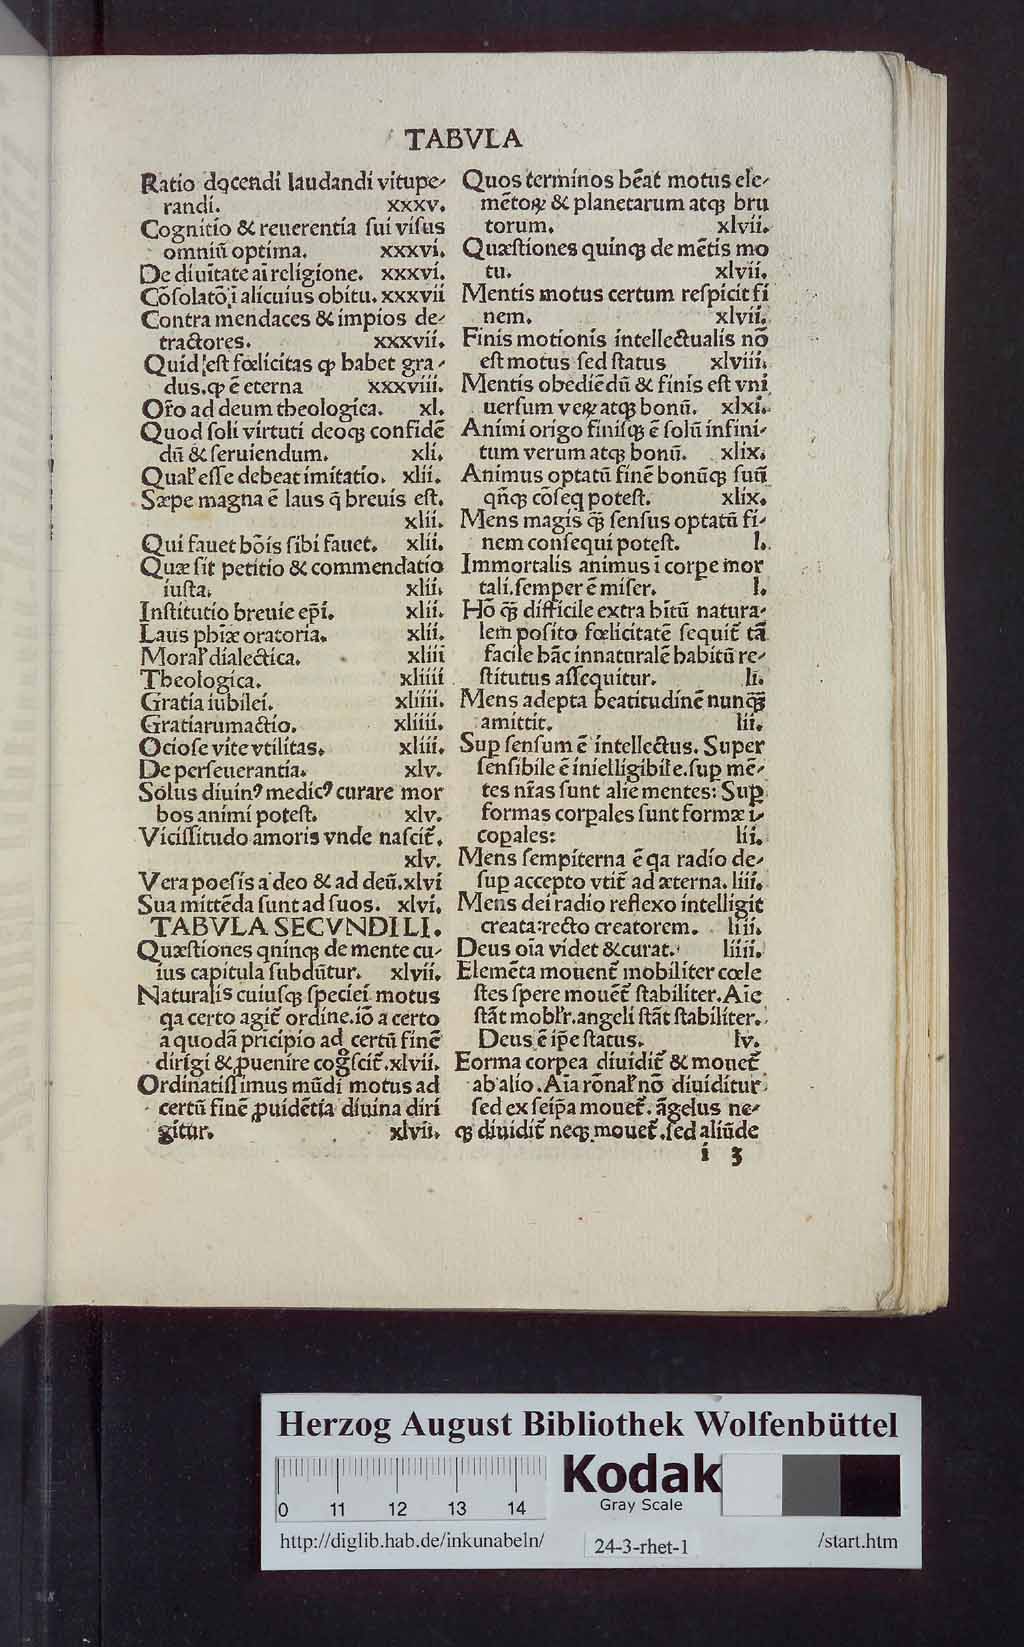 TABVLA
Ratio docendi laudandi vitupe-
randi. xxxv.
Cognitio & reuerentia sui visus
omniū optima. xxxvi.
De diuītate aī religione. xxxvi.
Cōsolatō i alicuius obitu. xxxvii
Contra mendaces & impios de-
tractores. xxxvii.
Quid est fœlicitas ꝙ habet gra-
dus. ꝙ ē eterna xxxviii.
Or̄o ad deum theologica. xl.
Quod soli virtuti deoqꝫ confidē
dū & seruiendum. xli.
Qual' esse debeat imitatio. xlii.
Sæpe magna ē laus q̄ breuis est.
xlii.
Qui fauet bōis sibi fauet. xlii.
Quæ sit petitio & commendatio
iusta. xlii.
Institutio breuie ep̄i. xlii.
Laus phiæ oratoria. xlii.
Moral' dialectica. xliii
Theologica. xliiii
Gratia iubilei. xliiii.
Gratiarumactio. xliiii.
Ociose vite vtilitas. xliii.
De perseuerantia. xlv.
Solus diuinꝰ medicꝰ curare mor
bos animi potest. xlv.
Vicissitudo amoris vnde nascit᷑.
xlv.
Vera poesis a deo & ad deū. xlvi
Sua mittēda sunt ad suos. xlvi.
TABVLA SECVNDI LI.
Quæstiones qninqꝫ de mente cu-
ius capitula subdūtur. xlvii.
Naturalis cuiusqꝫ speciei motus
qa certo agit᷑ ordine. iō a certo
a quodā pricipio ad certū finē
dirigi & ꝓuenire cogͦscit᷑. xlvii.
Ordinatissimus mūdi motus ad
certū finē ꝓuidētia diuina diri
gitur. xlvii.
Quos terminos hēat motus ele-
mētoꝝ & planetarum atqꝫ bru
torum. xlvii.
Quæstiones quinqꝫ de mētis mo
tu. xlvii.
Mentis motus certum respicit fi
nem. xlvii.
Finis motionis intellectualis nō
est motus sed status xlviii.
Mentis obediēdū & finis est vni
uersum veꝝ atqꝫ bonū. xlxi.
Animi origo finisqꝫ ē solū infini-
tum verum atqꝫ bonū. xlix.
Animus optatū finē bonūqꝫ suū
qn̄qꝫ cōseq potest. xlix.
Mens magis qꝫ̄ sensus optatū fi-
nem consequi potest. l.
Immortalis animus i corpe mor
tali. semper ē miser. l.
Hō qꝫ̄ difficile extra hitū natura-
lem posito fœlicitatē sequit᷑ tā
facile hāc innaturalē habitū re-
stitutus assequitur. li.
Mens adepta beatitudinē nunqꝫ̄
amittit. lii.
Suꝑ sensum ē intellectus. Super
sensibile ē inielligibile. suꝑ mē-
tes nr̄as sunt alie mentes: Suꝑ
formas corꝑales sunt formæ i-
coꝑales: lii.
Mens sempiterna ē qa radio de-
suꝑ accepto vtit᷑ ad æterna. liii.
Mens dei radio reflexo intelligit
creata: recto creatorem. liii.
Deus oīa videt & curat. liiii.
Elemēta mouent᷑ mobiliter cœle
stes spere mouēt᷑ stabiliter. Aīe
stāt mobl'r. angeli stāt stabiliter.
Deus ē ip̄e status. lv.
Eorma corpea diuidit᷑ & mouet᷑
ab alio. Aīa rōnal' nō diuiditur
sed ex seip̄a mouet᷑. āgelus ne-
qꝫ diuidit᷑ neqꝫ mouet᷑. sed aliūde
i 3
Herzog August Bibliothek Wolfenbüttel
0 11 12 13 14
Kodak
Gray Scale
http://diglib.hab.de/inkunabeln/ 24-3-rhet-1 /start.htm